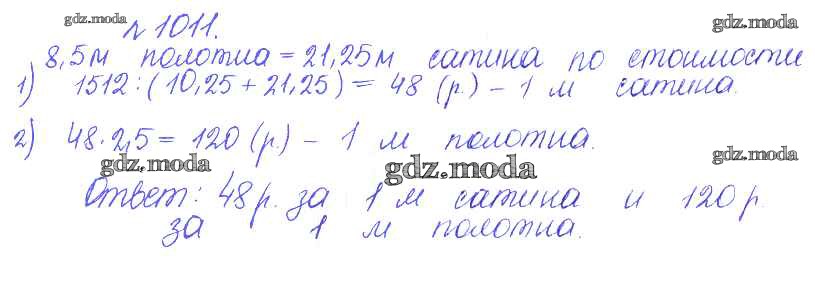 gdz.moda
gdz.moda
№ 1011.
8,5м полотна = 21,25м сатина по стоимости
1) 1512:(10,25 + 21,25) = 48 (р.) – 1 м сатина.
2) 48·2,5 = 120 (р.) – 1 м полотна.
gdz.moda
gdz.moda
gdz.moda
Ответ: 48р. за 1 м сатина и 120р.
за 1 м полотна.